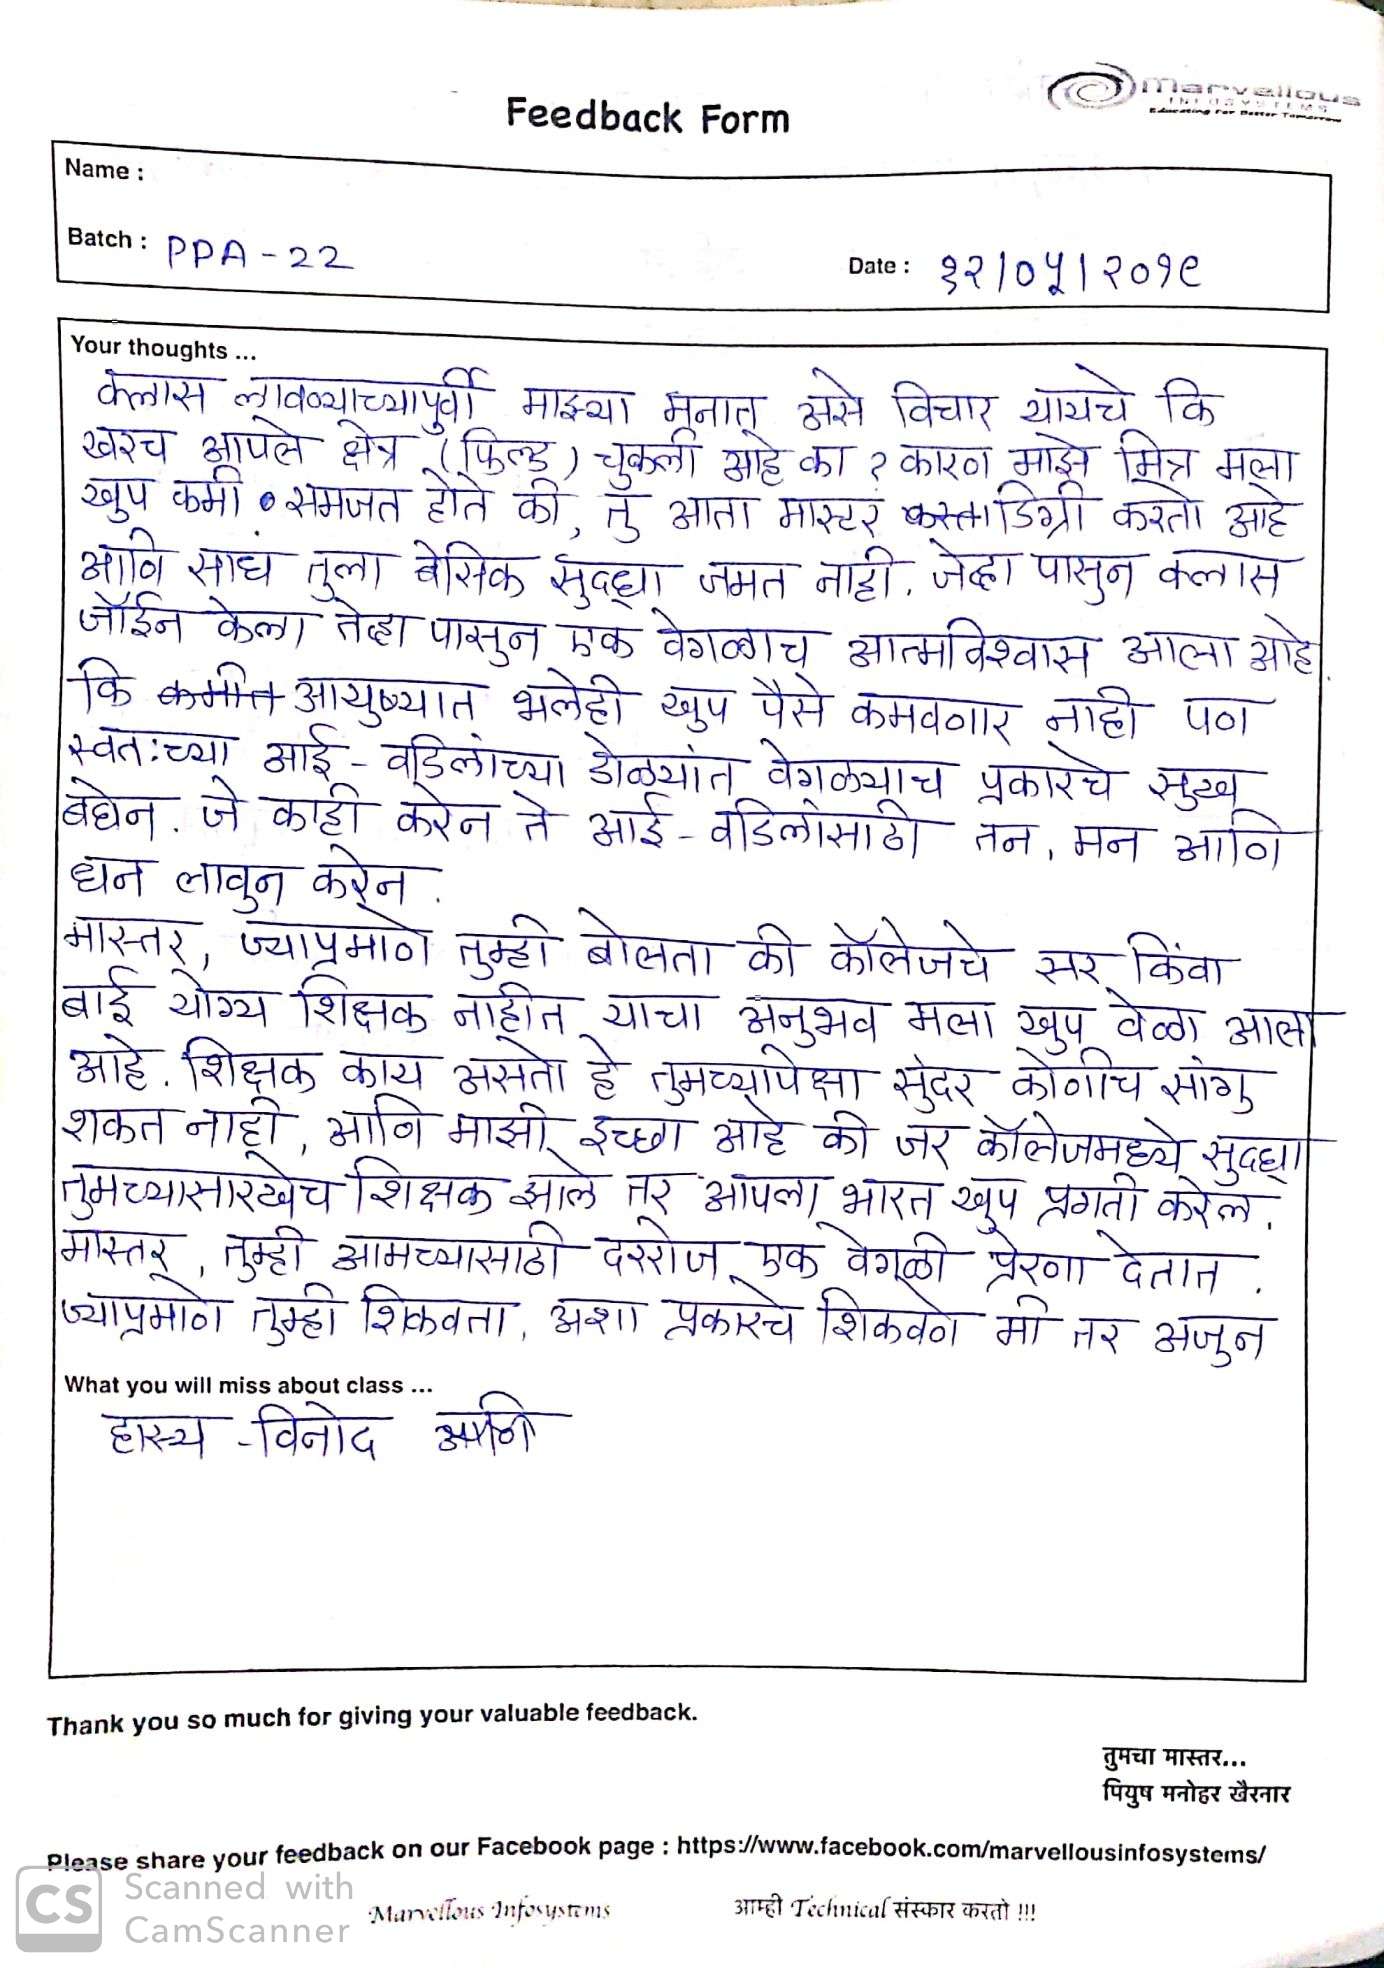 marvellous
INFOSYSTEMS
Educating For Better Tomorrow
Feedback Form
Name :
Batch : PPA - 22
Date : १२/०५/२०१९
Your thoughts ...
क्लास लावण्याच्यापुर्वी माझ्या मनात असे विचार यायचे कि
खरच आपले क्षेत्र (फिल्ड) चुकली आहे का ? कारण माझे मित्र मला
खुप कमी समजत होते की, तु आता मास्टर डिग्री करतो आहे
आणि साधं तुला बेसिक सुदध्दा जमत नाही. जेव्हा पासुन क्लास
जॉईन केला तेव्हा पासुन एक वेगळाच आत्मविश्वास आला आहे.
कि आयुष्यात भलेही खुप पैसे कमवणार नाही पण
स्वतःच्या आई - वडिलांच्या डोळ्यांत वेगळ्याच प्रकारचे सुख
बघेन. जे काही करेन ते आई - वडिलांसाठी तन, मन आणि
धन लावुन करेन.
मास्तर, ज्याप्रमाणे तुम्ही बोलता की कॉलेजचे सर किंवा
बाई योग्य शिक्षक नाहीत याचा अनुभव मला खुप वेळा आला
आहे. शिक्षक काय असतो हे तुमच्यापेक्षा सुंदर कोणीच सांगु
शकत नाही, आणि माझी इच्छा आहे की जर कॉलेजमध्ये सुदध्दा
तुमच्यासारखेच शिक्षक झाले तर आपला भारत खुप प्रगती करेल.
मास्तर, तुम्ही आमच्यासाठी दररोज एक वेगळी प्रेरणा देतात.
ज्याप्रमाणे तुम्ही शिकवता, अशा प्रकारचे शिकवणे मी तर अजुन
What you will miss about class ...
हास्य - विनोद आणि
Thank you so much for giving your valuable feedback.
तुमचा मास्तर...
पियुष मनोहर खैरनार
Please share your feedback on our Facebook page : https://www.facebook.com/marvellousinfosystems/
CS Scanned with
CamScanner
Marvellous Infosystems
आम्ही Technical संस्कार करतो !!!